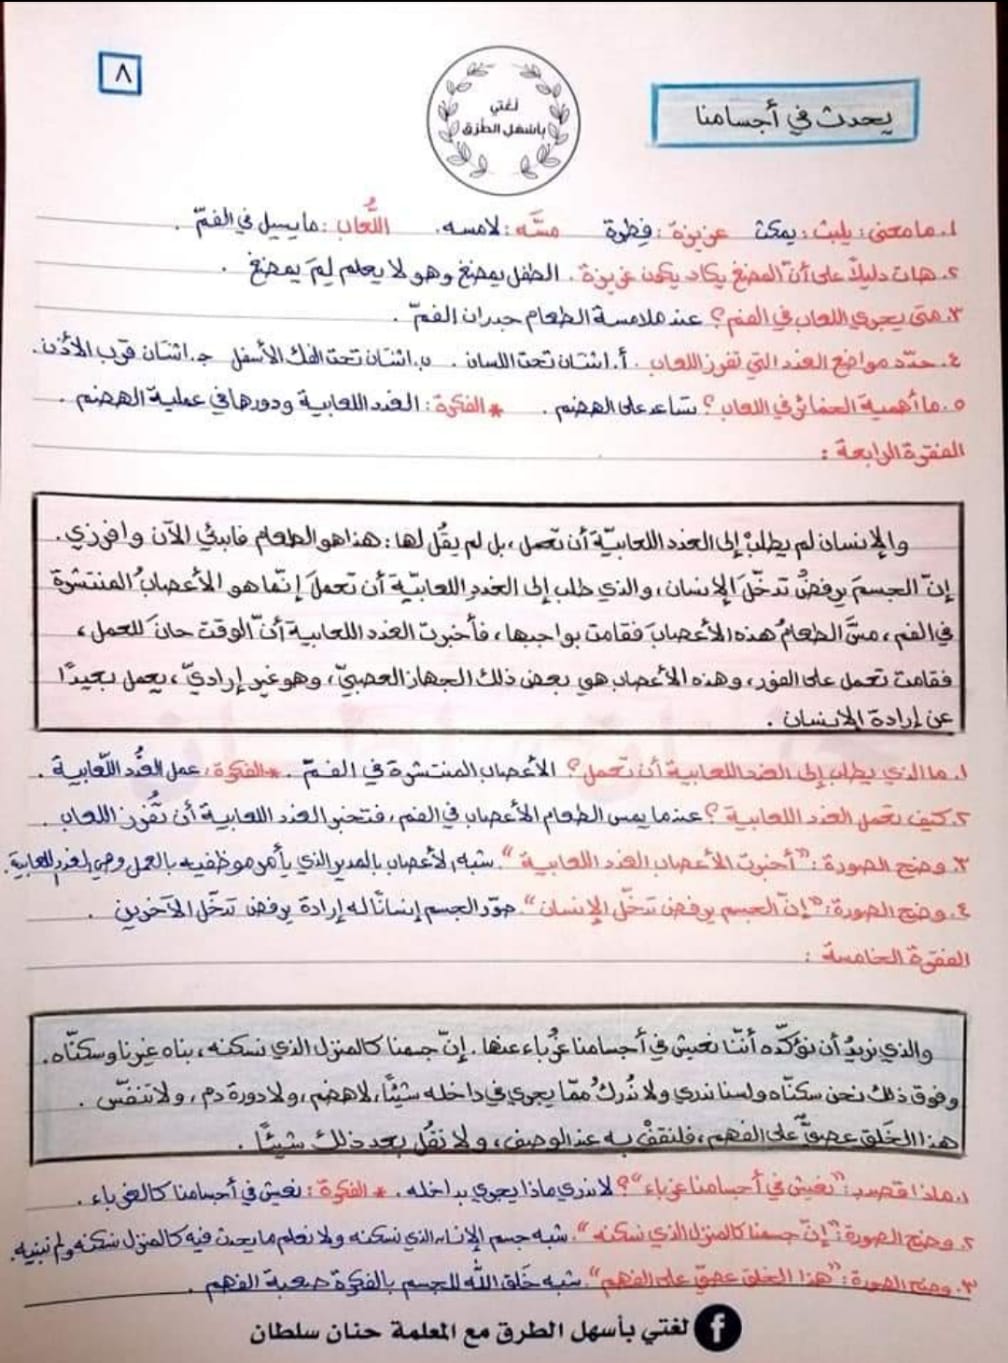 ٨
لغتي
بأسهل الطرق
يحدث في أجسامنا
١. ما معنى: يلبث: يمكث عزيزة: فطرة مسَّه: لامسه. اللُّعاب: ما يسيل في الفمّ.
٢. هات دليلاً على أنّ المضغ يكاد يكون غريزة. الطفل يمضغ وهو لا يعلم لِمَ يمضغ.
٣. متى يجري اللعاب في الفم؟ عند ملامسة الطعام جدران الفمّ.
٤. حدّد مواضع الغدد التي تفرز اللعاب. أ. اثنتان تحت اللسان. ب. اثنتان تحت الفك الأسفل ج. اثنتان قرب الأذن.
٥. ما أهمية الخمائر في اللعاب؟ تساعد على الهضم. * الفكرة: الغدد اللعابية ودورها في عملية الهضم.
الفقرة الرابعة:
والإنسان لم يطلبْ إلى الغدد اللعابيّة أن تعمل، بل لم يقُل لها: هذا هو الطعام فابدئي الآن وافرزي.
إنّ الجسمَ يرفضُ تدخّلَ الإنسان، والذي طلب إلى الغددِ اللعابيّة أن تعملَ إنّما هو الأعصابُ المنتشرة
في الفم، مسَّ الطعامُ هذه الأعصابَ فقامت بواجبها، فأخبرت الغدد اللعابية أنّ الوقت حانَ للعمل،
فقامت تعمل على الفور، وهذه الأعصاب هي بعض ذلك الجهاز العصبيّ، وهو غير إراديّ، يعمل بعيدًا
عن إرادة الإنسان.
١. ما الذي يطلب إلى الغدد اللعابية أن تعمل؟ الأعصاب المنتشرة في الفمّ. * الفكرة: عمل الغُدد اللّعابية.
٢. كيف تعمل الغدد اللعابية؟ عندما يمس الطعام الأعصاب في الفم، فتخبر الغدد اللعابية أن تُفرز اللعاب.
٣. وضح الصورة: "أخبرت الأعصاب الغدد اللعابية". شبه الأعصاب بالمدير الذي يأمر موظفيه بالعمل وهي الغدد اللعابية.
٤. وضح الصورة: "إنّ الجسم يرفض تدخّل الإنسان". صوّر الجسم إنسانًا له إرادة يرفض تدخّل الآخرين.
الفقرة الخامسة:
والذي نريدُ أن نؤكّده أنّنا نعيش في أجسامنا غُرباء عنها. إنّ جسمنا كالمنزل الذي نسكنه، بناه غيرنا وسكنّاه.
وفوق ذلك نحن سكنّاه ولسنا ندري ولا نُدركُ ممّا يجري في داخله شيئًا، لا هضم، ولا دورة دم، ولا تنفّس.
هذا الخَلق عصيٌّ على الفهم، فلنقفْ به عند الوصف، ولا نقُل بعد ذلك شيئًا.
١. ماذا قصد: "نعيش في أجسامنا غرباء"؟ لا ندري ماذا يجري بداخله. * الفكرة: نعيش في أجسامنا كالغرباء.
٢. وضح الصورة: "إنّ جسمنا كالمنزل الذي نسكنه". شبه جسم الإنسان الذي نسكنه ولا نعلم ما يحدث فيه كالمنزل نسكنه ولم نبنيه.
٣. وضح الصورة: "هذا الخلق عصيّ على الفهم". شبه خَلق اللّه للجسم بالفكرة صعبة الفهم.
لغتي بأسهل الطرق مع المعلمة حنان سلطان